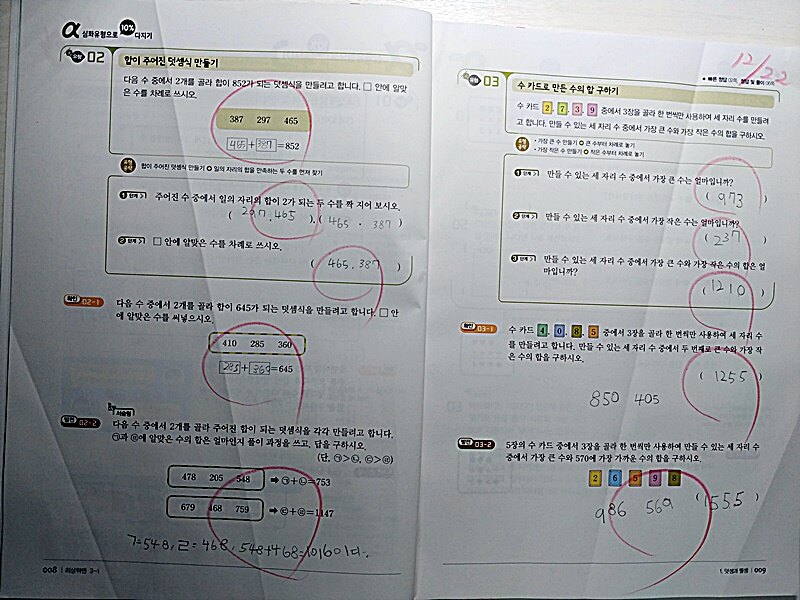 α 심화유형으로 10% 다지기
유형 02 합이 주어진 덧셈식 만들기
다음 수 중에서 2개를 골라 합이 852가 되는 덧셈식을 만들려고 합니다. □ 안에 알맞
은 수를 차례로 쓰시오.
387 297 465
465+387=852
합이 주어진 덧셈식 만들기 일의 자리의 합을 만족하는 두 수를 먼저 찾기
1단계 주어진 수 중에서 일의 자리의 합이 2가 되는 두 수를 짝 지어 보시오.
( 297, 465 ), ( 465 . 387 )
2단계 □ 안에 알맞은 수를 차례로 쓰시오.
( 465, 387 )
확인 02-1 다음 수 중에서 2개를 골라 합이 645가 되는 덧셈식을 만들려고 합니다. □ 안
에 알맞은 수를 써넣으시오.
410 285 360
285+360=645
서술형
확인 02-2 다음 수 중에서 2개를 골라 주어진 합이 되는 덧셈식을 각각 만들려고 합니다.
㉠과 ㉣에 알맞은 수의 합은 얼마인지 풀이 과정을 쓰고, 답을 구하시오.
(단, ㉠>㉡, ㉢>㉣)
478 205 548 ➡ ㉠+㉡=753
679 468 759 ➡ ㉢+㉣=1147
ㄱ=548, ㄹ=468, 548+468=1016이다.
008 | 최상위탄 3-1
12/22
빠른 정답 정답 및 풀이
유형 03 수 카드로 만든 수의 합 구하기
수 카드 2, 7, 3, 9 중에서 3장을 골라 한 번씩만 사용하여 세 자리 수를 만들려
고 합니다. 만들 수 있는 세 자리 수 중에서 가장 큰 수와 가장 작은 수의 합을 구하시오.
• 가장 큰 수 만들기 큰 수부터 차례로 놓기
• 가장 작은 수 만들기 작은 수부터 차례로 놓기
1단계 만들 수 있는 세 자리 수 중에서 가장 큰 수는 얼마입니까?
( 973 )
2단계 만들 수 있는 세 자리 수 중에서 가장 작은 수는 얼마입니까?
( 237 )
3단계 만들 수 있는 세 자리 수 중에서 가장 큰 수와 가장 작은 수의 합은 얼
마입니까?
( 1210 )
확인 03-1 수 카드 4, 0, 8, 5 중에서 3장을 골라 한 번씩만 사용하여 세 자리 수
를 만들려고 합니다. 만들 수 있는 세 자리 수 중에서 두 번째로 큰 수와 가장 작
은 수의 합을 구하시오.
( 1255 )
850 405
확인 03-2 5장의 수 카드 중에서 3장을 골라 한 번씩만 사용하여 만들 수 있는 세 자리 수
중에서 가장 큰 수와 570에 가장 가까운 수의 합을 구하시오.
2 6 5 9 8
986 569 ( 1555 )
1. 덧셈과 뺄셈 | 009